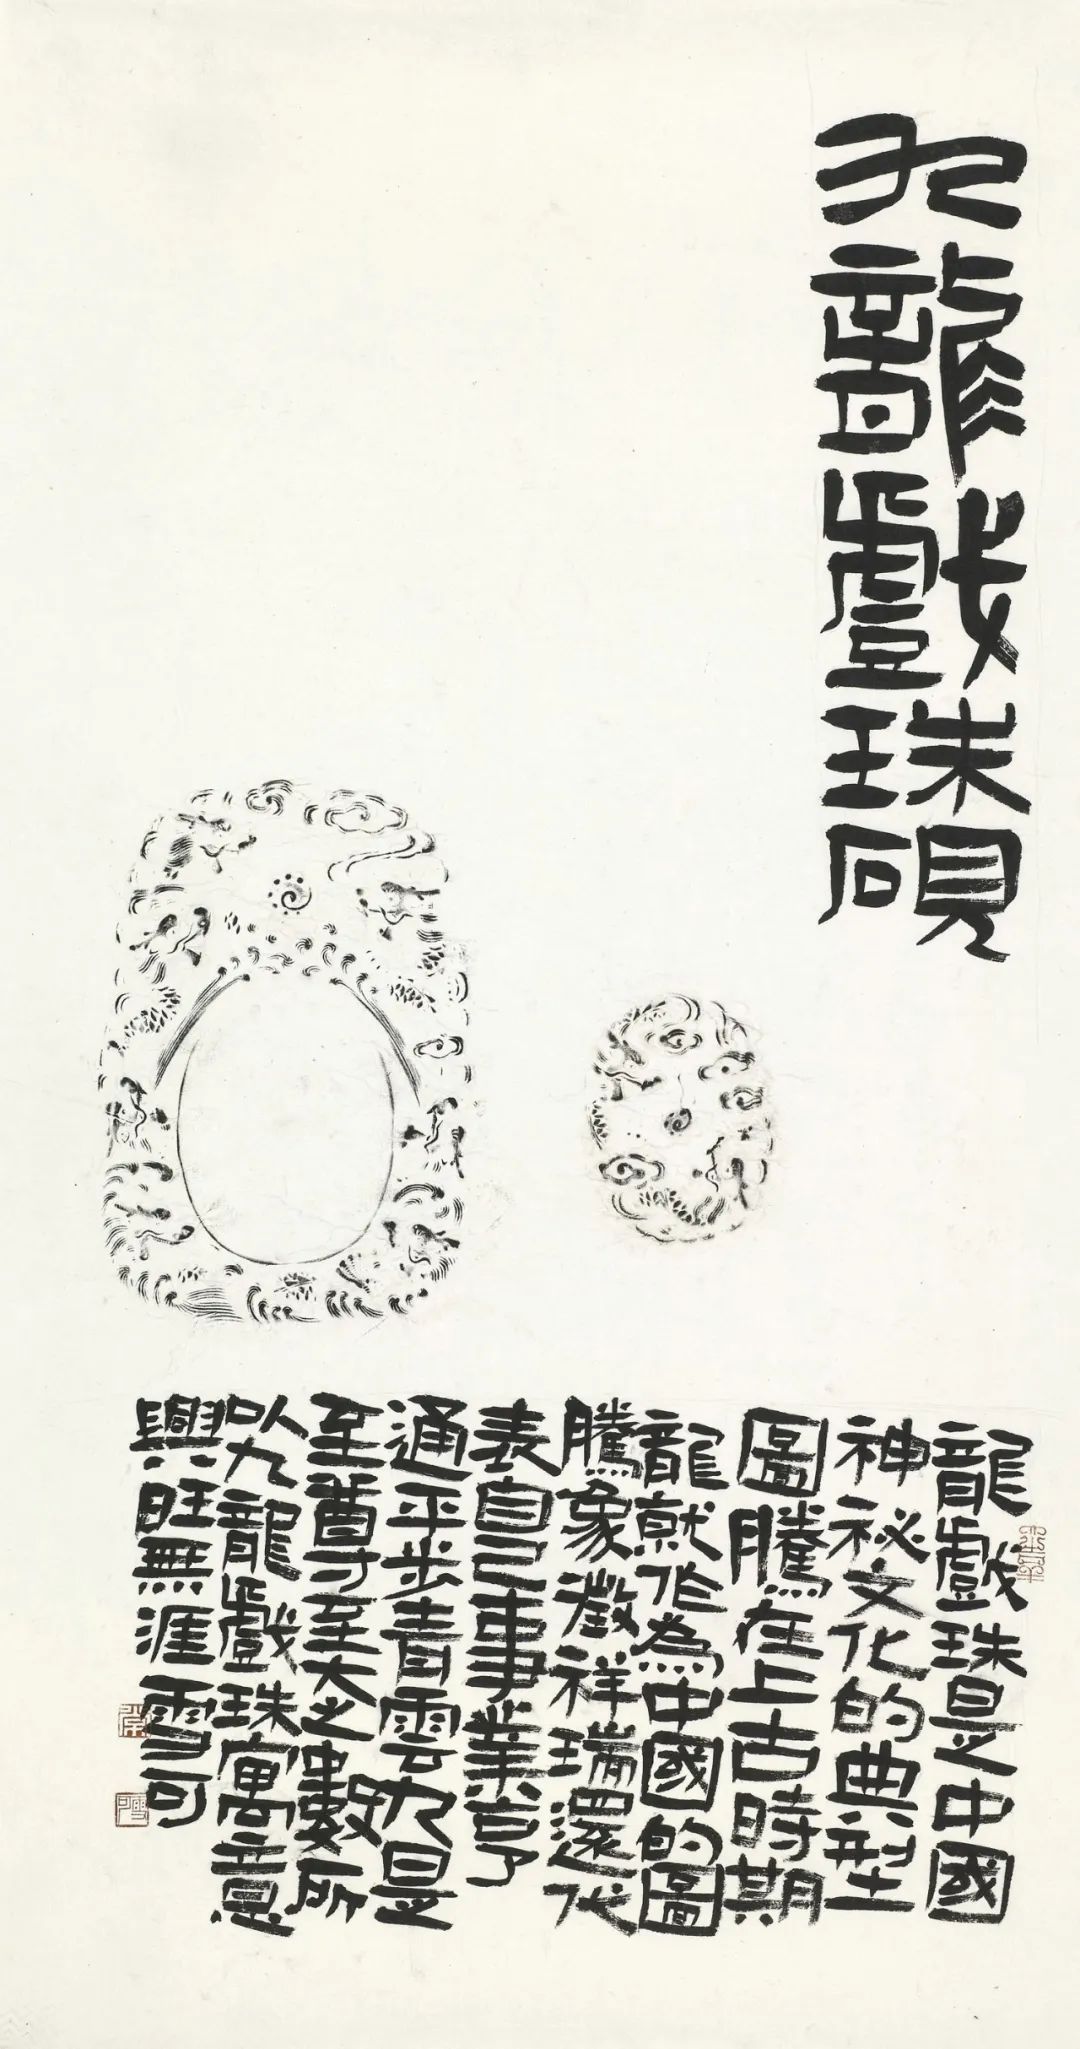 九龍戲珠硯
龍戲珠是中國
神祕文化的典型
圖騰在上古時期
龍就作為中國的圖
騰象徵祥瑞還代
表自己事業亨
通平步青雲九是
至尊至大之數所
以九龍戲珠寓意
興旺無涯雪可